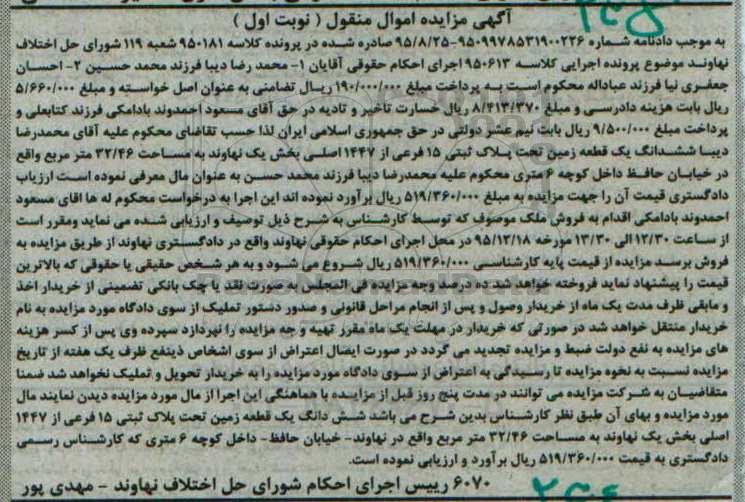 آگهی مزایده اموال منقول ( نوبت اول )
به موجب دادنامه شماره ۹۵۰۹۹۷۸۵۳۱۹۰۰۲۲۶-۹۵/۸/۲۵ صادره شده در پرونده کلاسه ۹۵۰۱۸۱ شعبه ۱۱۹ شورای حل اختلاف
نهاوند موضوع پرونده اجرایی کلاسه ۹۵۰۶۱۳ اجرای احکام حقوقی آقایان ۱- محمد رضا دیبا فرزند محمد حسین ۲- احسان
جعفری نیا فرزند عباداله محکوم است به پرداخت مبلغ ۱۹۰/۰۰۰/۰۰۰ ریال تضامنی به عنوان اصل خواسته و مبلغ ۵/۶۶۰/۰۰۰
ریال بابت هزینه دادرسی و مبلغ ۸/۴۱۳/۳۷۰ ریال خسارت تاخیر و تادیه در حق آقای مسعود احمدوند بادامکی فرزند کتابعلی و
پرداخت مبلغ ۹/۵۰۰/۰۰۰ ریال بابت نیم عشر دولتی در حق جمهوری اسلامی ایران لذا حسب تقاضای محکوم علیه آقای محمدرضا
دیبا ششدانگ یک قطعه زمین تحت پلاک ثبتی ۱۵ فرعی از ۱۴۴۷ اصلی بخش یک نهاوند به مساحت ۳۲/۴۶ متر مربع واقع
در خیابان حافظ داخل کوچه ۶ متری محکوم علیه محمدرضا دیبا فرزند محمد حسن به عنوان مال معرفی نموده است ارزیاب
دادگستری قیمت آن را جهت مزایده به مبلغ ۵۱۹/۳۶۰/۰۰۰ ریال برآورد نموده اند این اجرا به درخواست محکوم له ها اقای مسعود
احمدوند بادامکی اقدام به فروش ملک موصوف که توسط کارشناس به شرح ذیل توصیف و ارزیابی شده می نماید ومقرر است
از ساعت ۱۲/۳۰ الی ۱۳/۳۰ مورخه ۹۵/۱۲/۱۸ در محل اجرای احکام حقوقی نهاوند واقع در دادگستری نهاوند از طریق مزایده به
فروش برسد مزایده از قیمت پایه کارشناسی ۵۱۹/۳۶۰/۰۰۰ ریال شروع می شود و به هر شخص حقیقی یا حقوقی که بالاترین
قیمت را پیشنهاد نماید فروخته خواهد شد ده درصد وجه مزایده فی المجلس به صورت نقد یا چک بانکی تضمینی از خریدار اخذ
و مابقی ظرف مدت یک ماه از خریدار وصول و پس از انجام مراحل قانونی و صدور دستور تملیک از سوی دادگاه مورد مزایده به نام
خریدار منتقل خواهد شد در صورتی که خریدار در مهلت یک ماه مقرر تهیه و جه مزایده را نپردازد سپرده وی پس از کسر هزینه
های مزایده به نفع دولت ضبط و مزایده تجدید می گردد در صورت ایصال اعتراض از سوی اشخاص ذینفع ظرف یک هفته از تاریخ
مزایده نسبت به نحوه مزایده تا رسیدگی به اعتراض از سوی دادگاه مورد مزایده را به خریدار تحویل و تملیک نخواهد شد ضمنا
متقاضیان به شرکت مزایده می توانند در مدت پنج روز قبل از مزایده با هماهنگی این اجرا از مال مورد مزایده دیدن نمایند مال
مورد مزایده و بهای آن طبق نظر کارشناس بدین شرح می باشد شش دانگ یک قطعه زمین تحت پلاک ثبتی ۱۵ فرعی از ۱۴۴۷
اصلی بخش یک نهاوند به مساحت ۳۲/۴۶ متر مربع واقع در نهاوند- خیابان حافظ- داخل کوچه ۶ متری که کارشناس رسمی
دادگستری به قیمت ۵۱۹/۳۶۰/۰۰۰ ریال برآورد و ارزیابی نموده است.
۶۰۷۰ رییس اجرای احکام شورای حل اختلاف نهاوند - مهدی پور